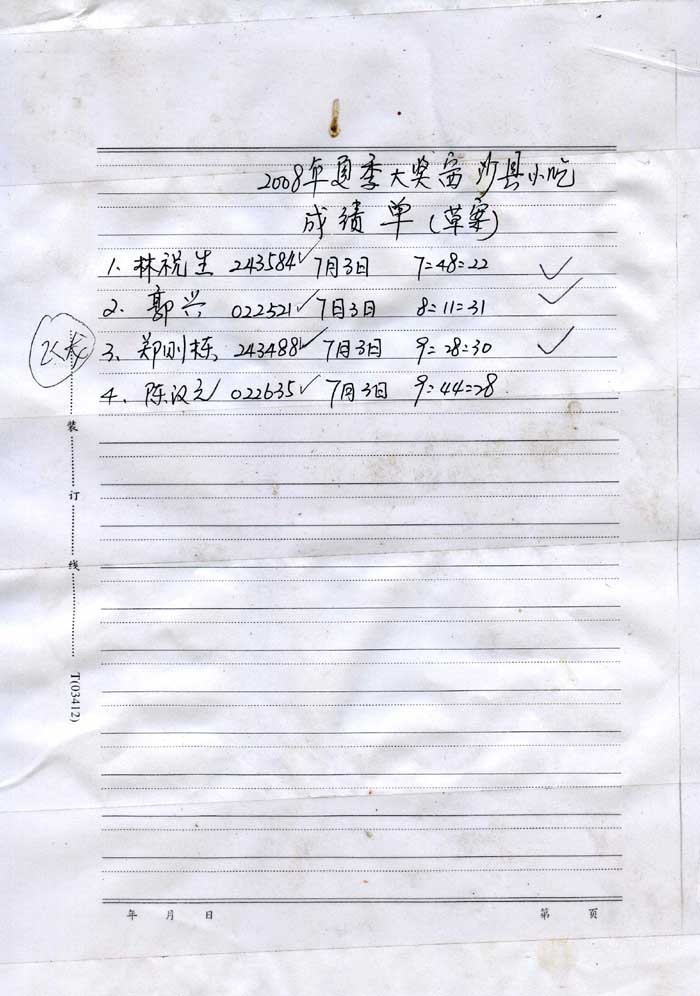 2008年夏季大奖赛沙县小吃
成绩单(草案)
1、林祝生 243584✓ 7月3日 7=48=22 ✓
2、郭兴 022521✓ 7月3日 8=11=31 ✓
3、郑刚栋 243488✓ 7月3日 9=28=30 ✓
4、陈汉文 022635✓ 7月3日 9=44=28
装
订
线
T(03412)
年 月 日 第 页